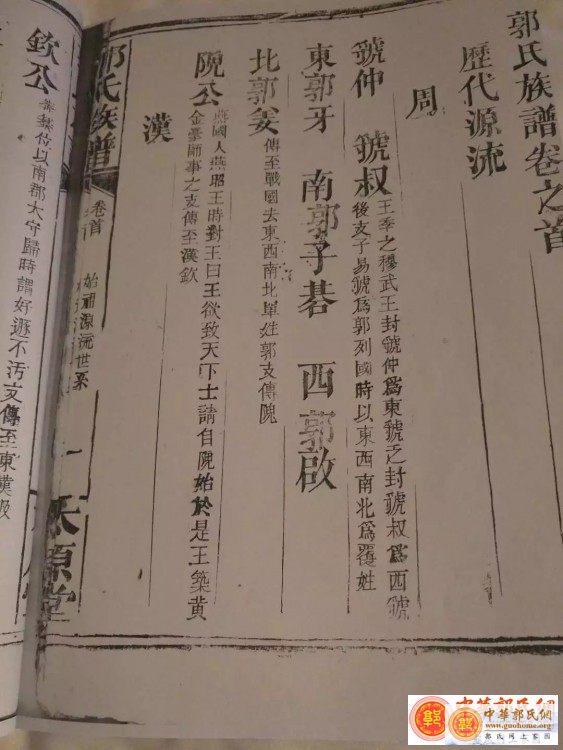 郭氏族譜卷之首
歷代源流
周
虢仲 虢叔 王季之穆武王封虢仲為東虢之封虢叔為西虢
後支子易虢為郭列國時以東西南北為覆姓
東郭牙 南郭子綦 西郭啟
北郭姜 傳至戰國去東西南北單姓郭支傳隗
隗公 燕國人燕昭王時對王曰王欲致天下士請自隗始於是王築黃
金臺師事之支傳至漢欽
漢
郭氏族譜
卷首
始祖源流世系
一
欽公 以南郡太守歸時謂好遯不汚支傳至東漢
中華郭氏網
www.guohome.org
郭氏网上家园